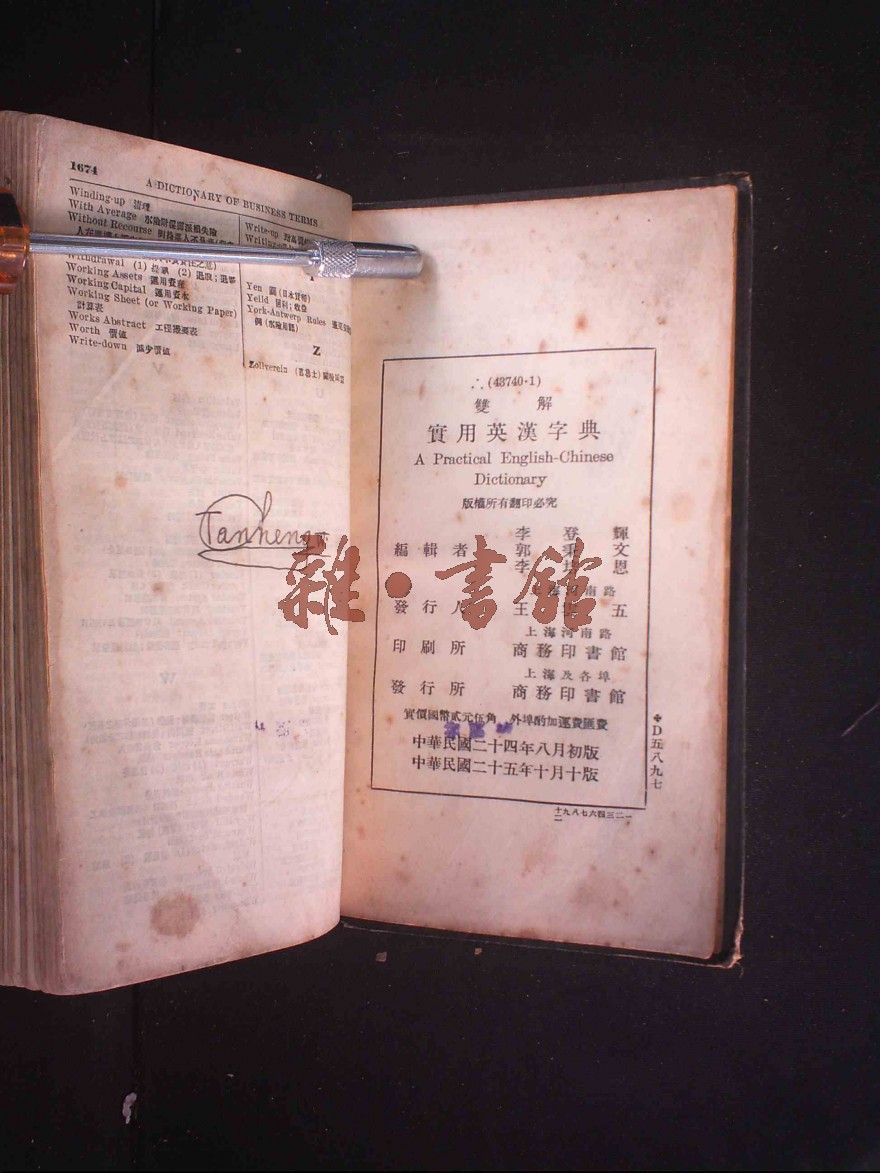 1674
A DICTIONARY OF BUSINESS TERMS
Winding-up 清理
With Average
Without Recourse
Withdrawal (1) 提款 (2) 退股；退夥
Working Assets 運用資產
Working Capital 運用資本
Working Sheet (or Working Paper)
計算表
Works Abstract
Worth 價值
Write-down 減少價值
Write-up
Yen 圓（日本貨幣）
Yeild
York-Antwerp Rules
例（水險用語）
Z
Zollverein
Tanheng
∴(43740·1)
雙解
實用英漢字典
A Practical English-Chinese
Dictionary
版權所有翻印必究
編輯者
李登輝
郭秉文
李培恩
上海河南路
發行人 王 五
上海河南路
印刷所 商務印書館
上海及各埠
發行所 商務印書館
實價國幣貳元伍角 外埠酌加運費匯費
中華民國二十四年八月初版
中華民國二十五年十月十版
❖D五八九七
雜·書館